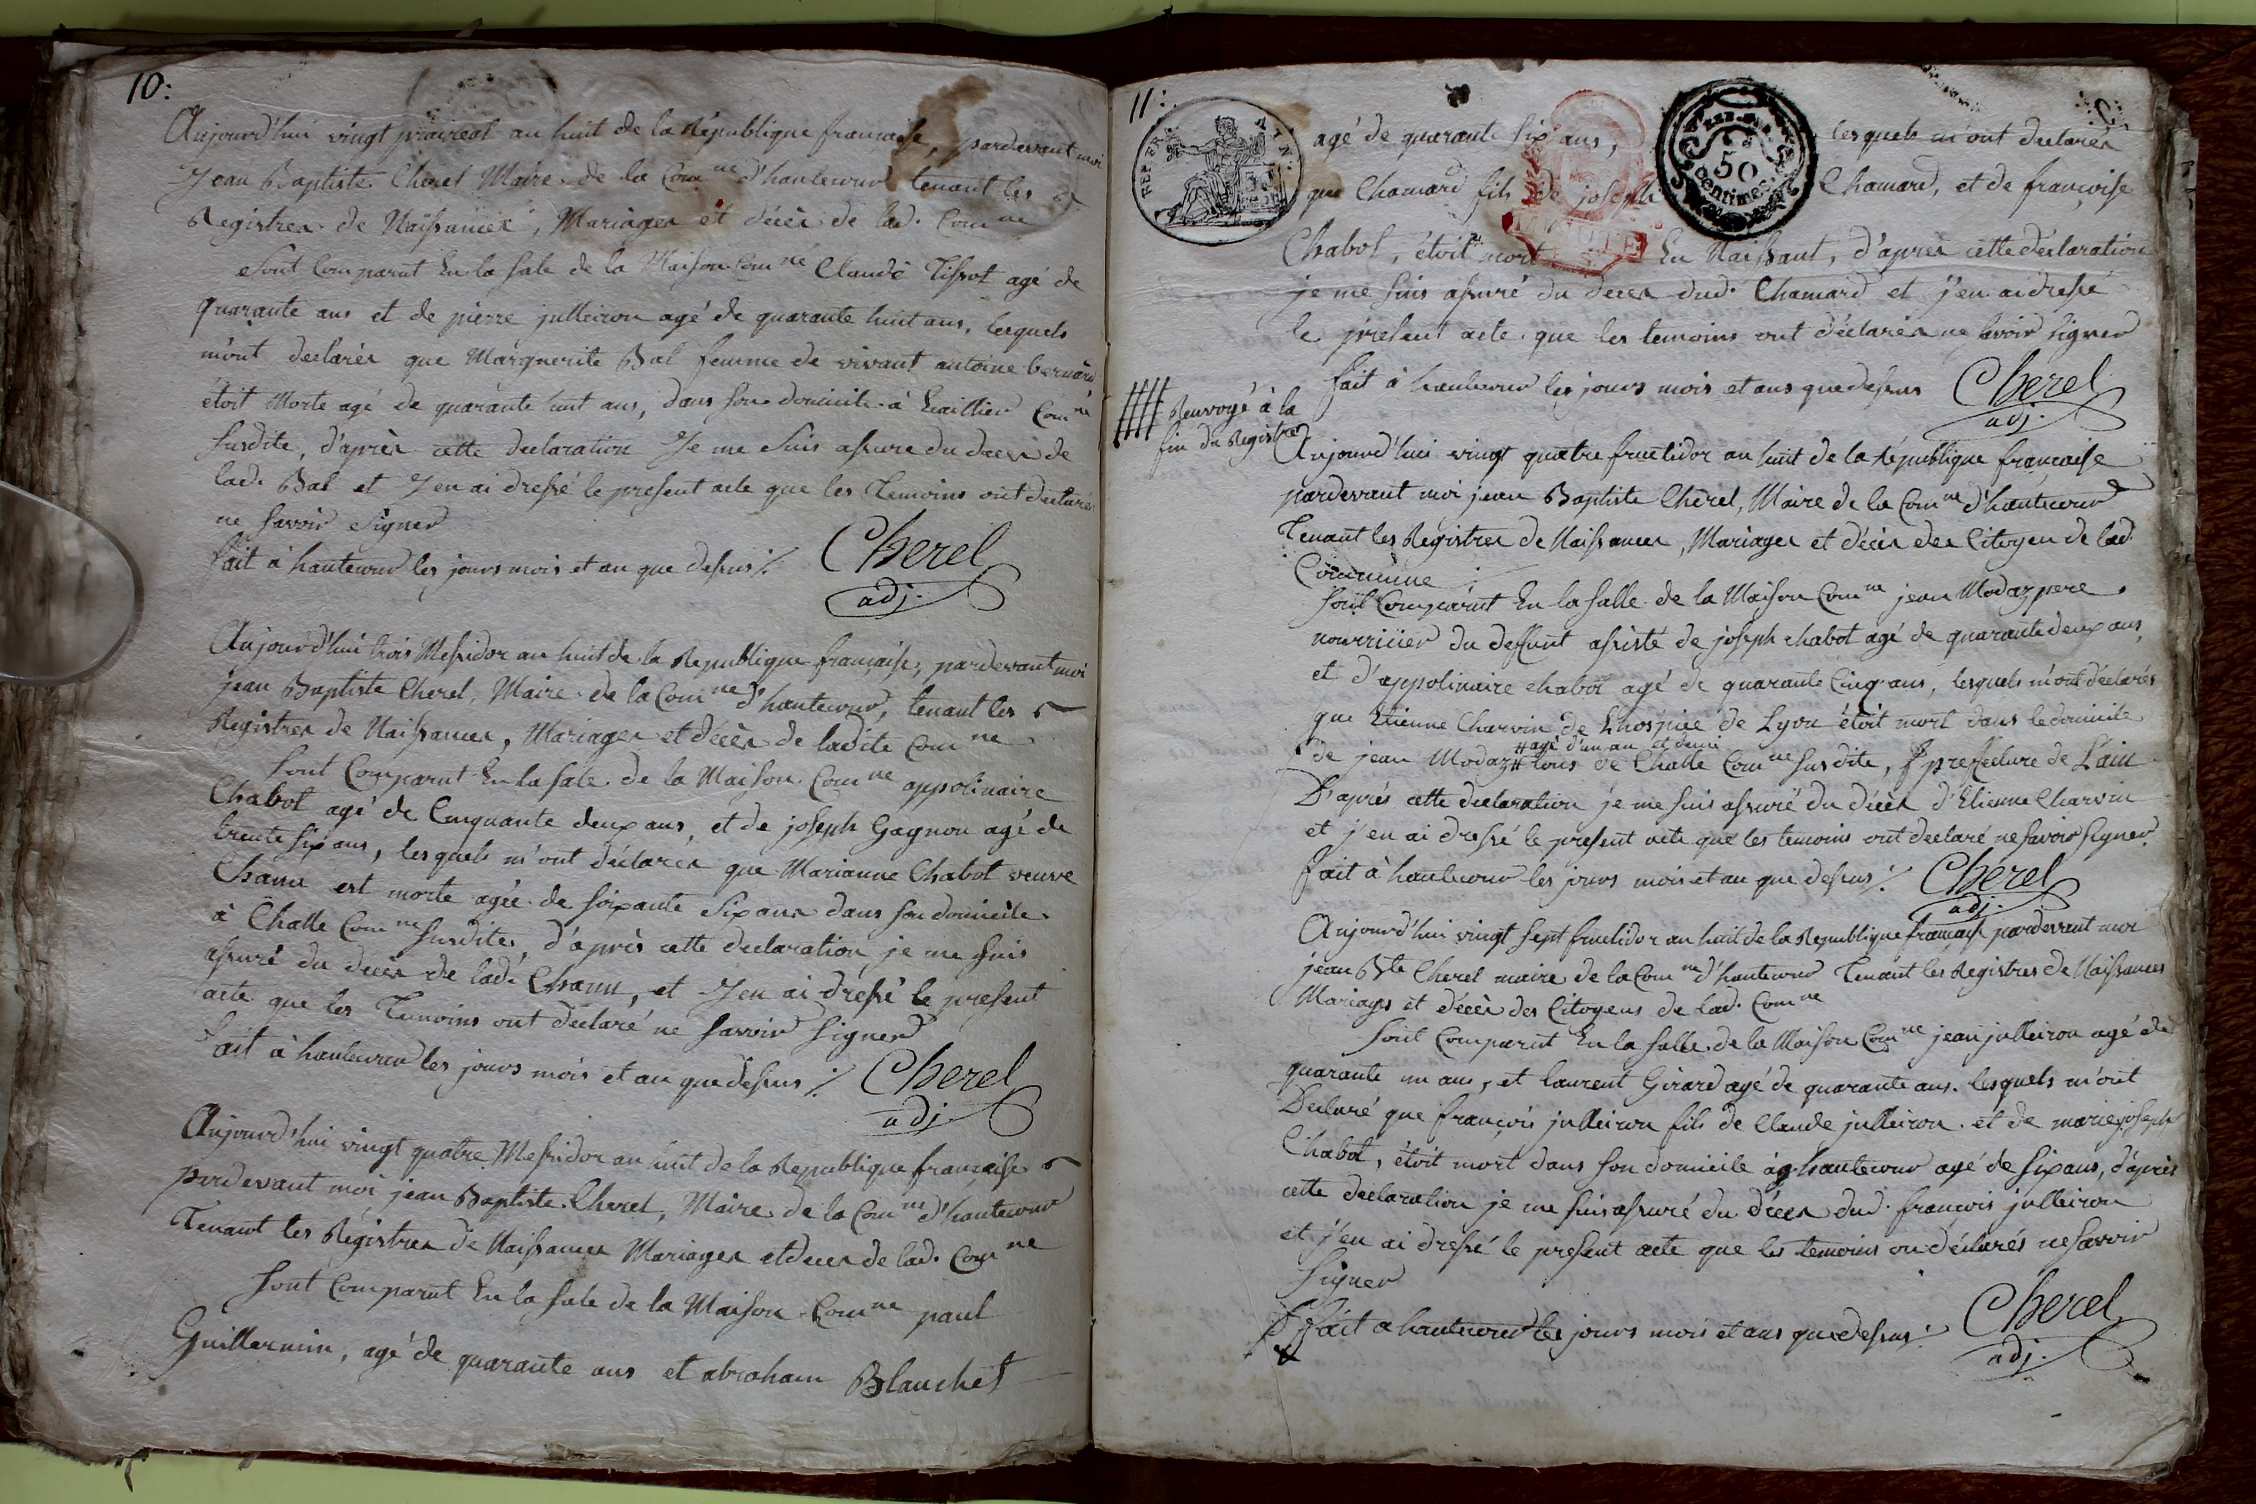 10:
Aujourd'hui vingt prairéal an huit de la République francaise, pardevant moi
Jean Baptiste Cherel Maire de la Com ne d'hautecour tenant les
Registres de Naissances, Mariages et décès de lad. Com ne
Sont Comparut En la sale de la Maison Com ne Claude Tissot agé de
quarante ans et de pierre julleiron agé de quarante huit ans, lesquels
m'ont declarés que Marguerite Bal femme de vivant antoine bernard
étoit Morte agé de quarante huit ans, dans son domicile à Com ne
susdite, d'après cette declaration Je me suis assure du deces de
lad. Bal et J'en ai dressé le present acte que les Temoins ont declarés
ne savoir signer
fait à hautecour les jours mois et an que dessus ./.
Cherel
adj.
Aujourd'hui trois Messidor an huit de la Republique francaise, pardevant moi
jean Baptiste Cherel, Maire de la Com ne d'hautecour, tenant les
Registres de Naissances, Mariages et décès de ladite Com ne
sont Comparut En la sale de la Maison Com ne appolinaire
Chabot agé de Cinquante deux ans, et de joseph Gagnon agé de
trente six ans, lesquels m'ont déclarés que Marianne Chabot veuve
Chanu est morte agée de soixante six ans dans son domicile
à Challe Com ne susdite, d'après cette declaration, je me suis
assuré du deces de lad. Chanu, et J'en ai dressé le present
acte que les Temoins ont declaré ne savoir signer
Fait à hautecour les jours mois et an que dessus ./.
Cherel
adj.
Aujourd'hui vingt quatre Messidor an huit de la Republique francaise
pardevant moi jean Baptiste Cherel, Maire de la Com ne d'hautecour
Tenant les Registres de Naissances Mariages et deces de lad. Com ne
sont Comparut En la sale de la Maison Com ne paul
Guillermin, agé de quarante ans et abraham Blanchet
11:
agé de quarante six ans, lesquels m'ont declarés
que Chamard fils de joseph Chamard, et de françoise
Chabot, étoit mort En Naissant, d'apres cette déclaration
je me suis assuré du deces dud. Chamard et j'en ai dressé
le présent acte que les temoins ont déclarés ne savoir signer
fait à hautecour les jours mois et ans que dessus
Cherel
adj.
Renvoyé à la
fin du Registre
Aujourd'hui vingt quatre fructidor an huit de la République francaise
pardevant moi jean Baptiste Cherel, Maire de la Com ne d'hautecour
Tenant les Registres de Naissances, Mariages et décès des Citoyen de lad.
Commune
sont Comparut En la salle de la Maison Com ne jean Modaz pere
nourricier du deffunt assisté de joseph chabot agé de quarante deux ans,
et d'appolinaire chabot agé de quarante Cinq ans, lesquels m'ont déclarés
que Etienne Charvin de L'hospice de Lyon étoit mort dans le domicile
# agé d'un an et demi
de jean Modaz # tous de Challe Com ne susdite, prefecture de L'ain
D'après cette declaration je me suis assuré du décès d'Etienne Charvin
et j'en ai dressé le present acte que les temoins ont declaré ne savoir signer
fait à hautecour les jours mois et an que dessus ./.
Cherel
adj.
Aujourd'hui vingt sept fructidor an huit de la Republique francaise pardevant moi
jean Bte Cherel maire de la Com ne d'hautecour Tenant les Registres de Naissances
Mariages et décès des Citoyens de Lad. Com ne
sont Comparut En la salle de la Maison Com ne jean julleiron agé de
quarante un ans, et laurent Girard agé de quarante ans. lesquels m'ont
Declaré que françois julleiron fils de Claude julleiron et de marie joseph
Chabot, étoit mort dans son domicile à hautecour agé de six ans, d'après
cette declaration je me suis assuré du décès dud. françois julleiron
et j'en ai dressé le present acte que les temoins on déclarés ne savoir
signer
Fait a hautecour les jours mois et ans que dessus ./.
Cherel
adj.
REP. FRA.
50
centimes